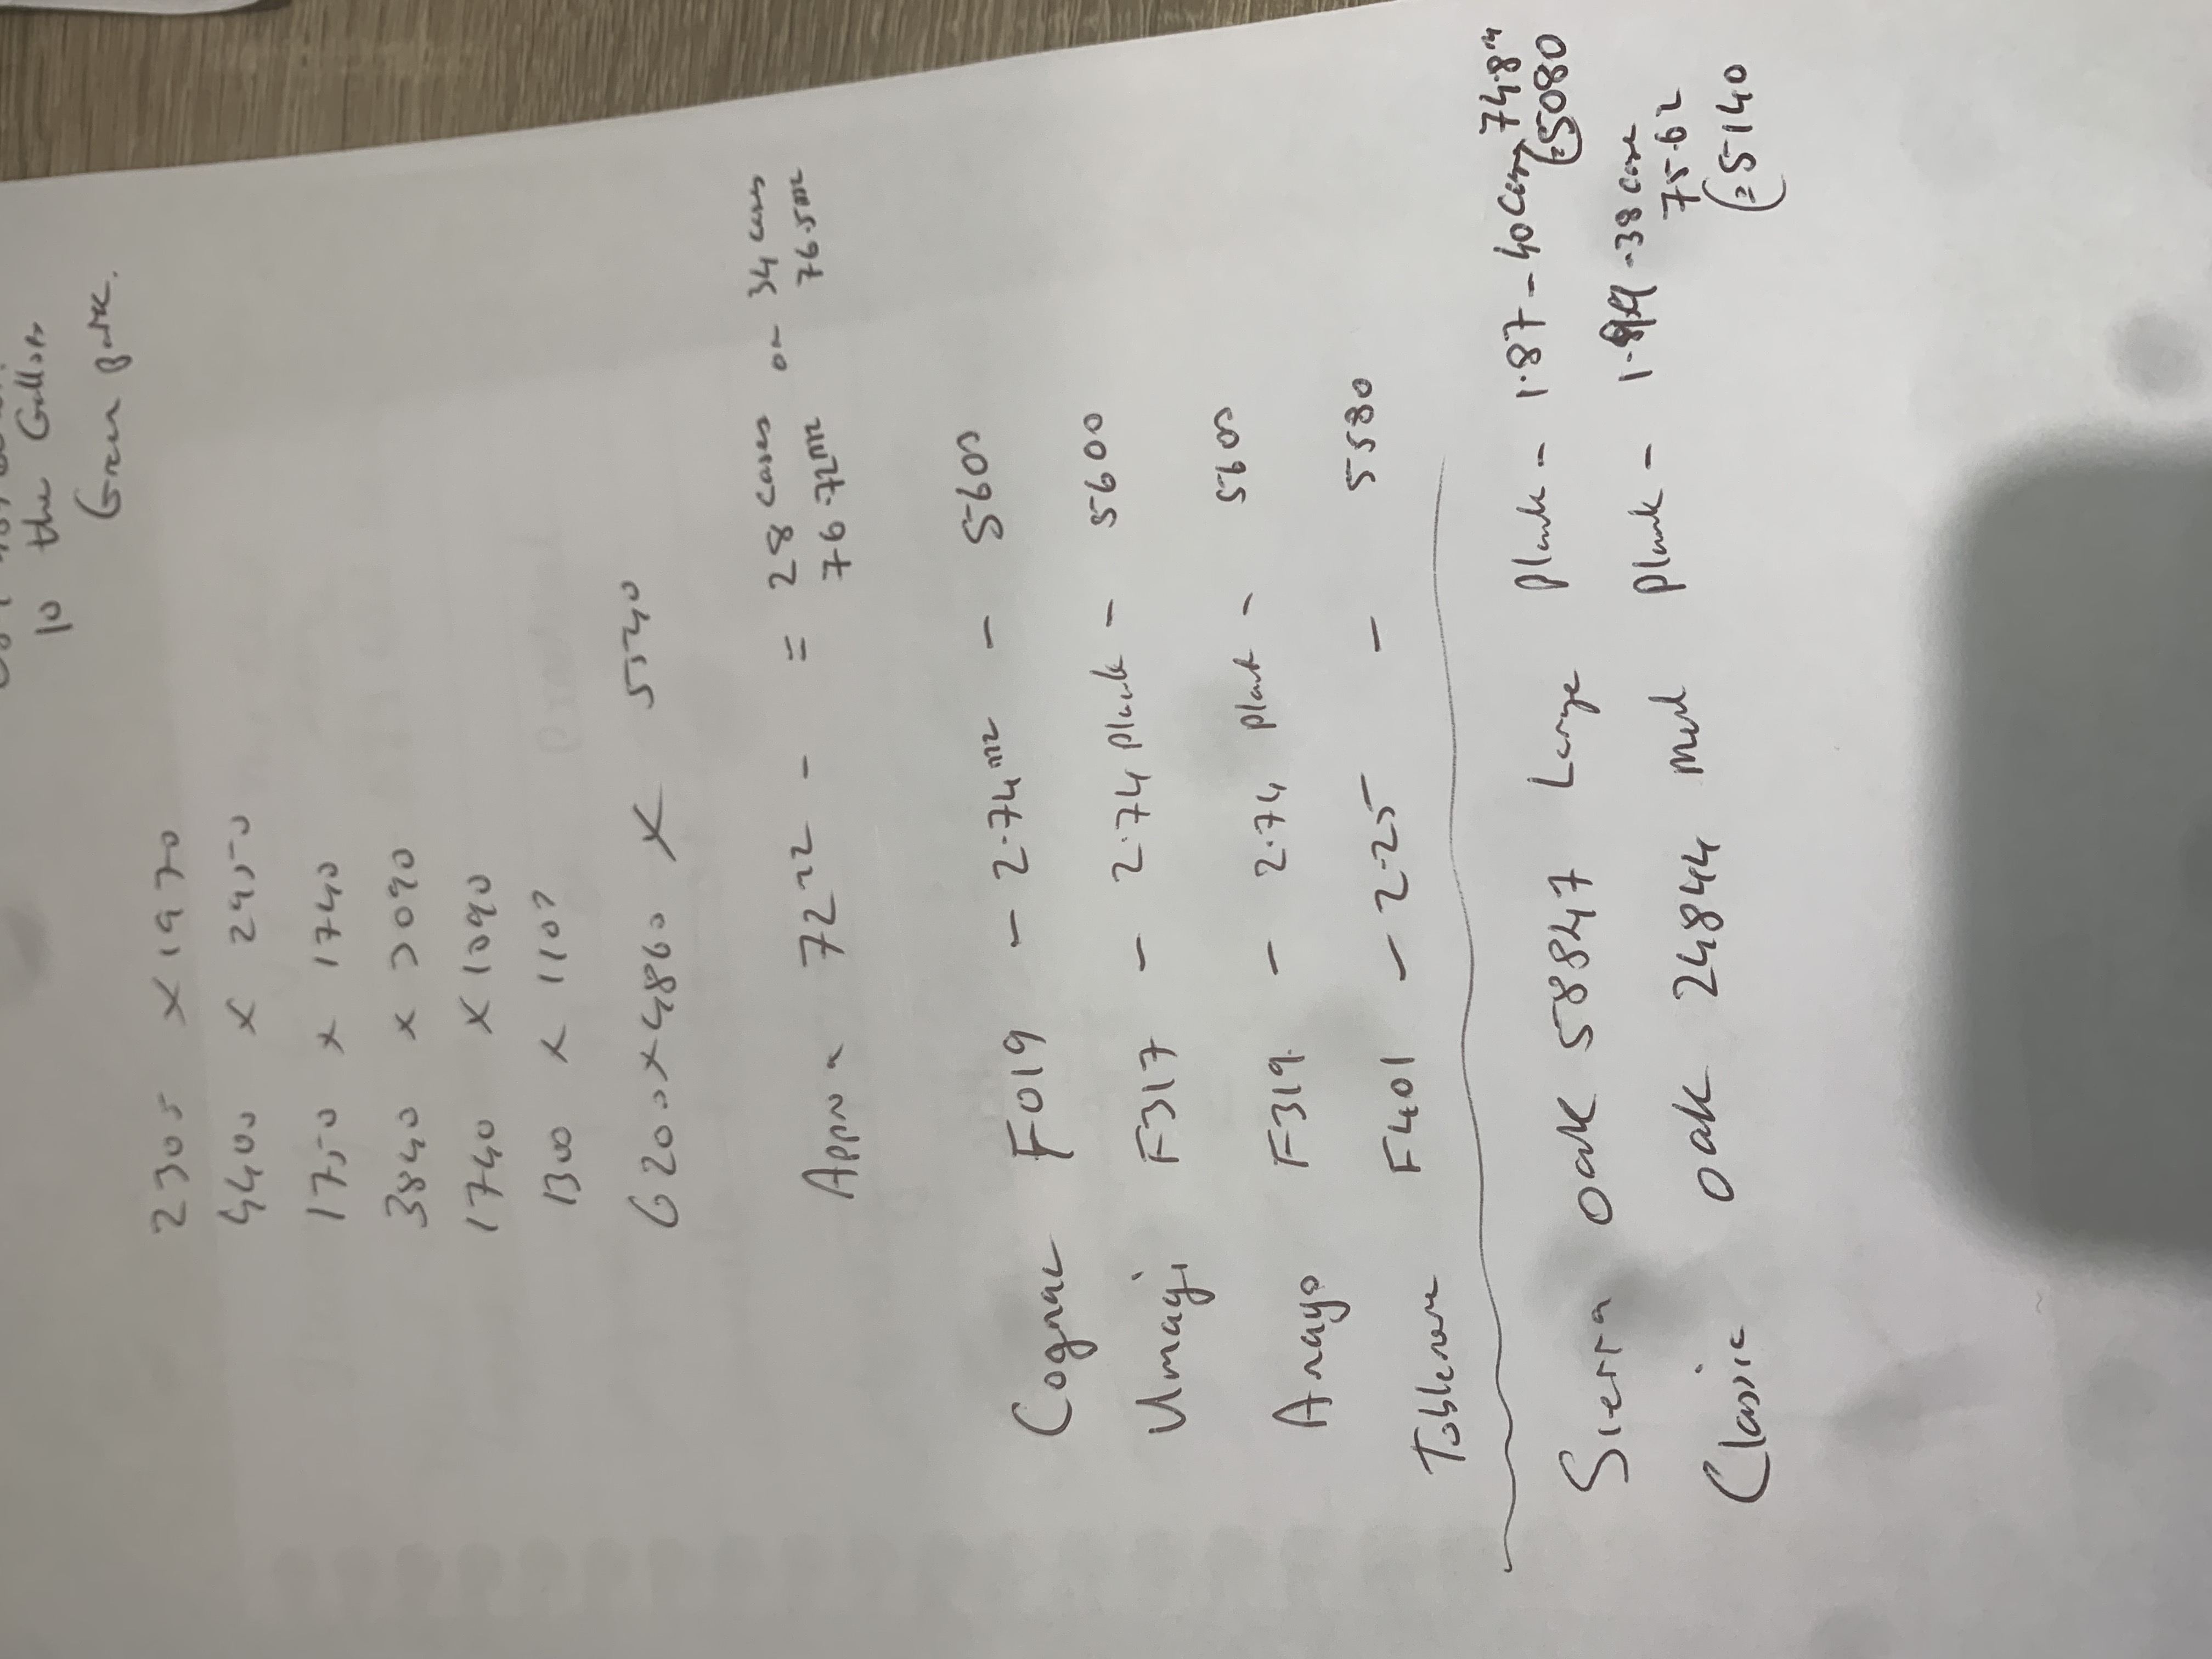 10 the Gallops
Green park.
2305 x 1970
4400 x 2450
1750 x 1740
3840 x 3090
1740 x 1090
1300 x 1107
6200 x 4860 x 5540
Approx 72m2 - = 28 cases or 34 cases
76.72m2 76.5m2
Cognac F019 - 2.74m2 - 5600
Umagi F317 - 2.74 plank - 5600
Arayo F319 - 2.74 plank - 5600
F401 - 2.25 - 5580
Sierra Oak 58847 Large plank - 1.87 - 40 cases 74.8m
(=5080
Classic oak 24844 plank - 38 cases
75.62
(=5140